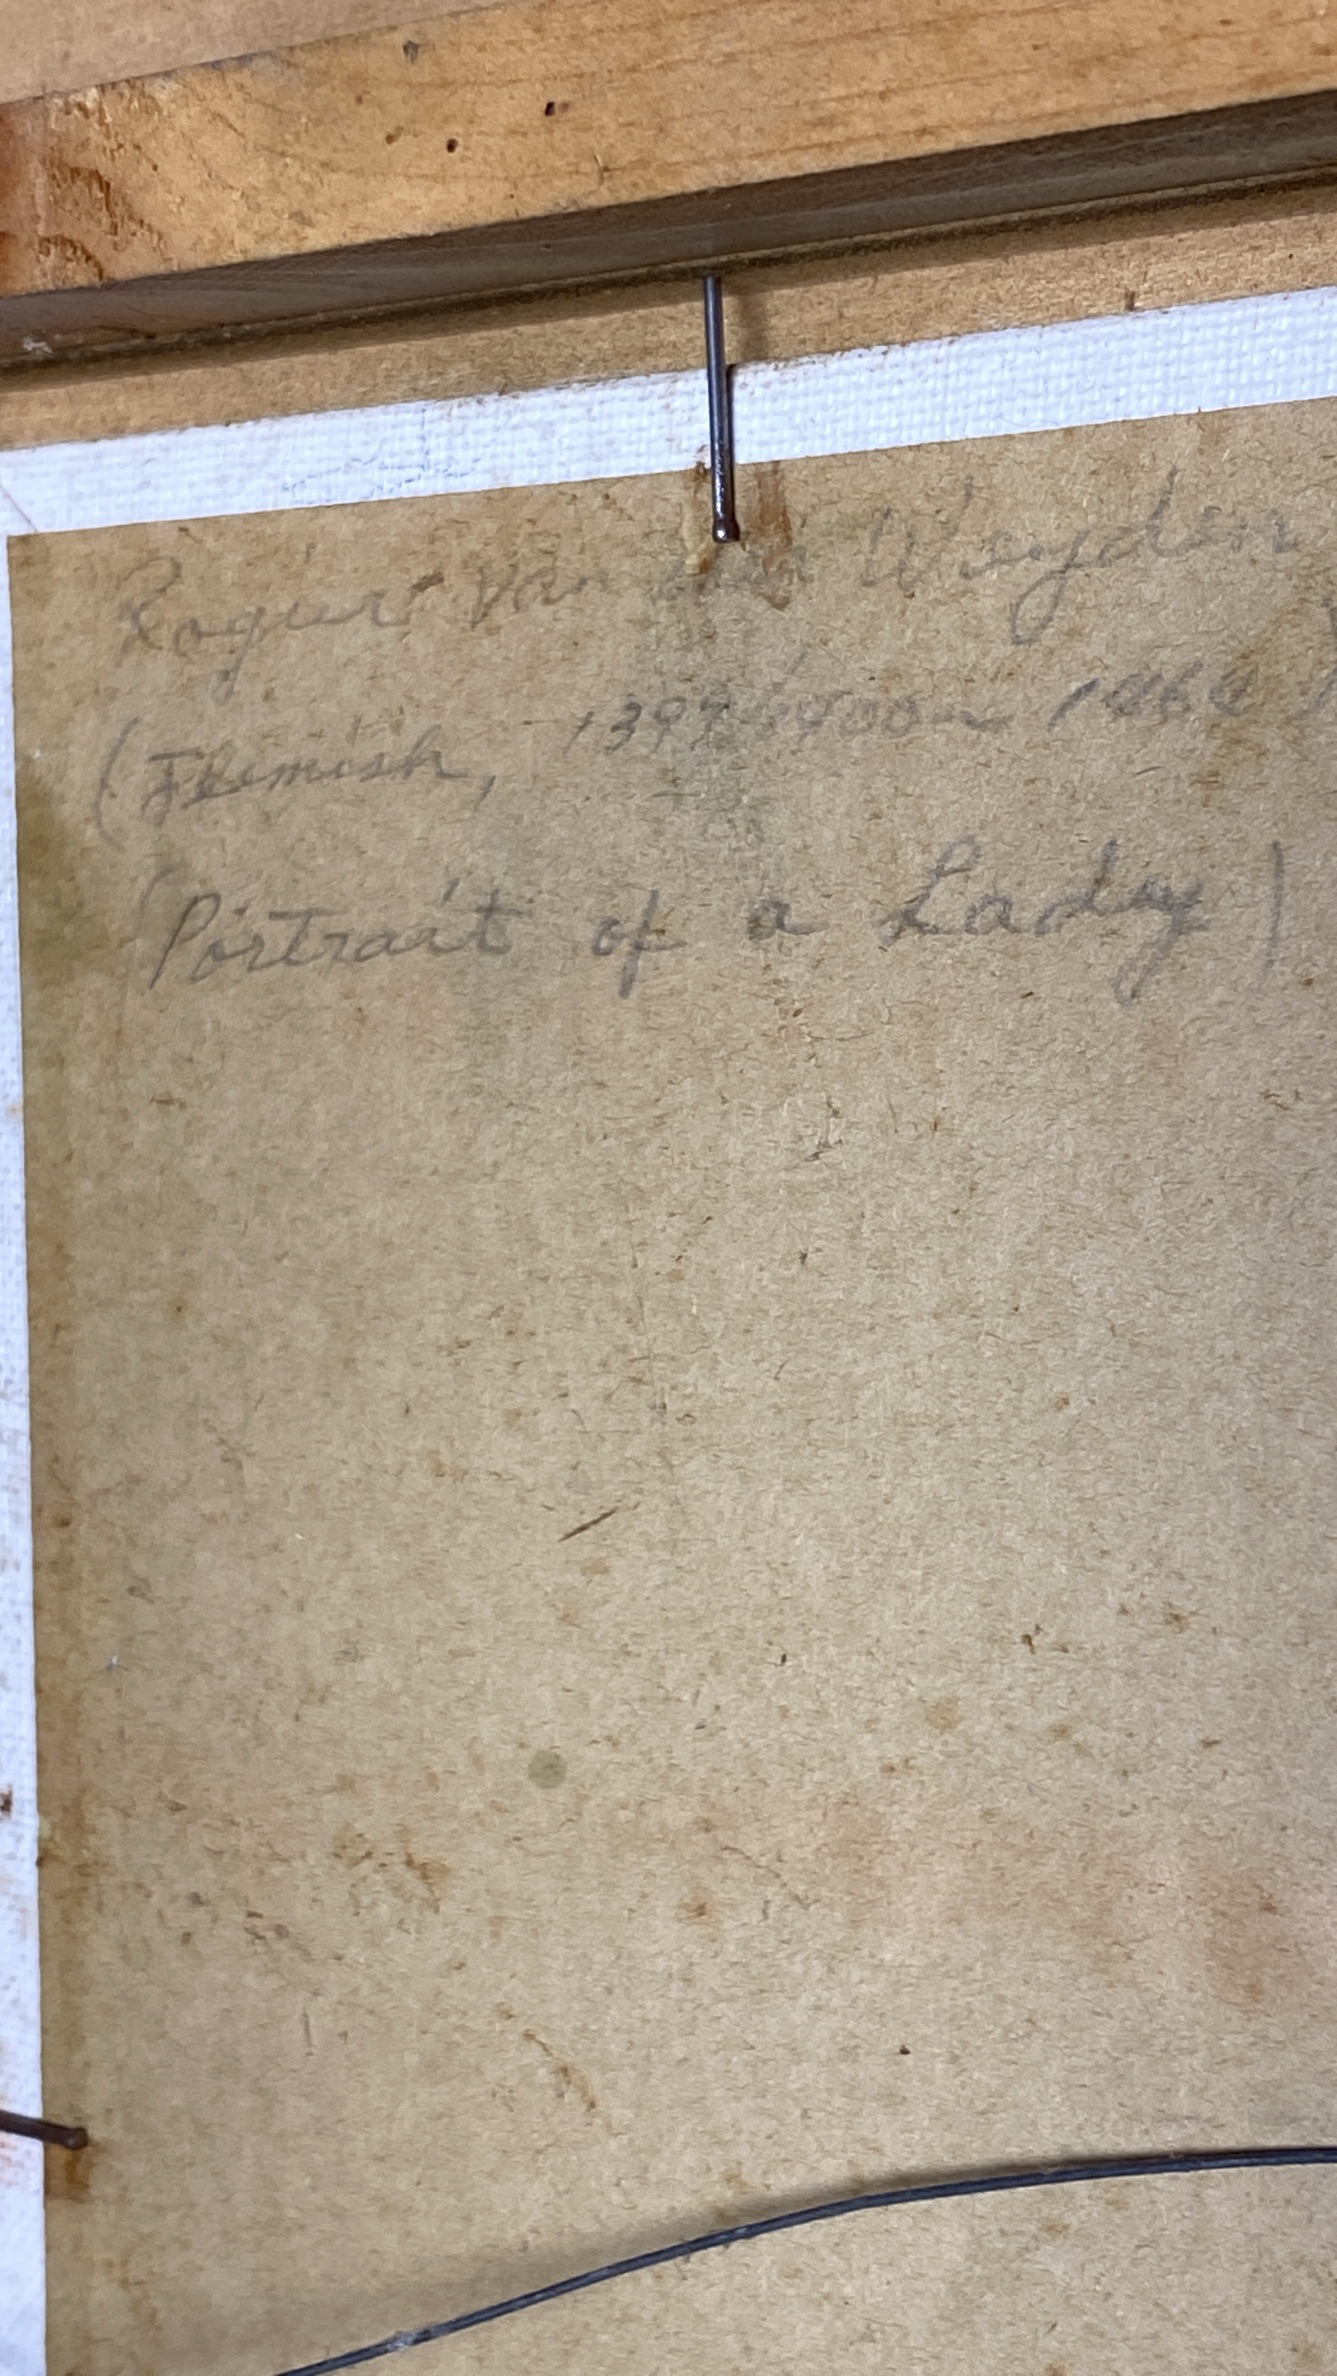 Rogier Van der Weyden
(Flemish, 1399/1400 - 1464
(Portrait of a Lady)